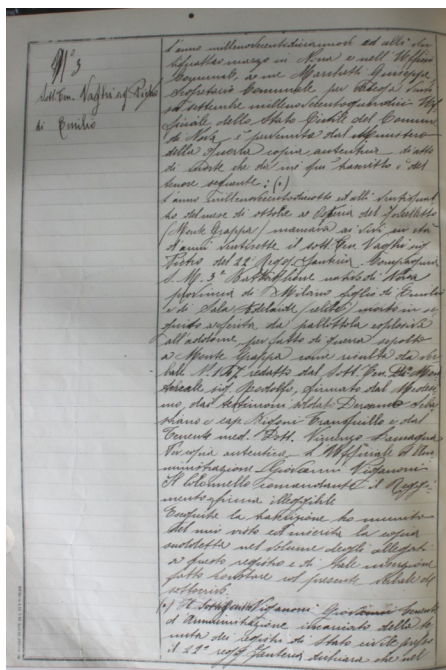 N° 3
Sott. Ten. Vaghi sig. Pietro
di Emilio
L'anno millenovecentodiciannove ad alli
marzo in Nova e nell'Ufficio
Comunale, io me Mariketti Giuseppe
Segretario Comunale per
settembre millenovecentoquindici Uf
ficiale dello Stato Civile del Comune
di Nova, è pervenuta dal Ministero
della Guerra copia autentica di atto
di morte che da me qui trascritto è del
tenore seguente: (·)
L'anno millenovecentodiciotto ed alli ventiquat
tro del mese di ottobre ad
(Monte Grappa) mancava ai vivi in età
d'anni ventisette il sott. Ten. Vaghi sig.
Pietro del 22° Regg. Fanteria Compagnia
S. M. 3° Battaglione nativo di Nova
provincia di Milano figlio di Emilio
e di Sala Adelaide (celibe) morto in se
guito a ferita da pallottola esplosiva
all'addome per fatto di guerra sepolto
a Monte Grappa come risulta da ver
bale N. 167 redatto dal Sott. Ten.
sig. Rodolfo, firmato dal Medesi
mo, dai testimoni soldato Seba
stiano e cap. Tranquillo e dal
Tenente med. Dott. Vincenzo
Per copia autentica L'Ufficiale d'Am
ministrazione Giovanni Viganoni
Il Colonnello Comandante il Reggi
mento firma illeggibile
Eseguita la trascrizione ho munito
del mio visto ed inserita la copia
suddetta nel volume degli allegati
a questo registro e di tale inserzione
fatto constare col presente verbale da
sottoscritto.
(·) Il Viganoni Giovanni
d'Amministrazione incaricato della te
nuta dei registri di Stato civile presso
il 22° regg. Fanteria dichiara che nel